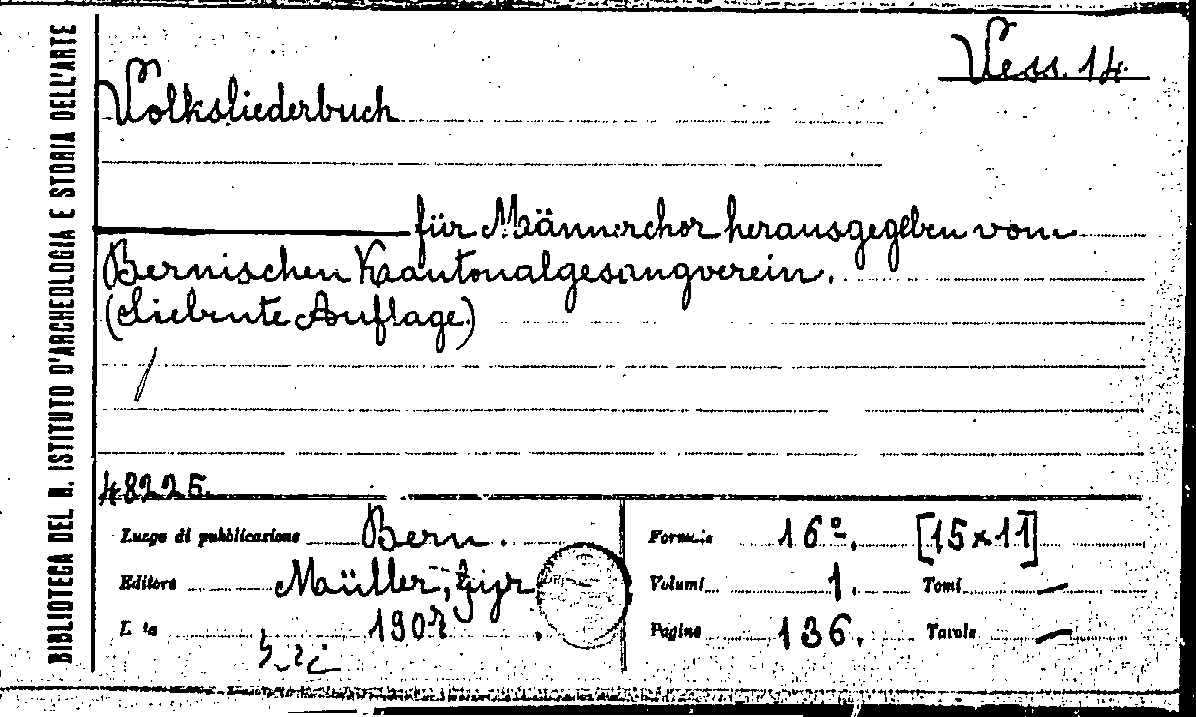 BIBLIOTECA DEL R. ISTITUTO D'ARCHEOLOGIA E STORIA DELL'ARTE
Vess. 14.
Volksliederbuch
für Männerchor herausgegeben vom
Bernischen Kantonalgesangverein.
(Siebente Auflage.)
48225.
Luogo di pubblicazione Bern.
Editore Müller,
Formato 16º. [15×11]
Volumi 1. Tomi —
Pagine 136. Tavole —